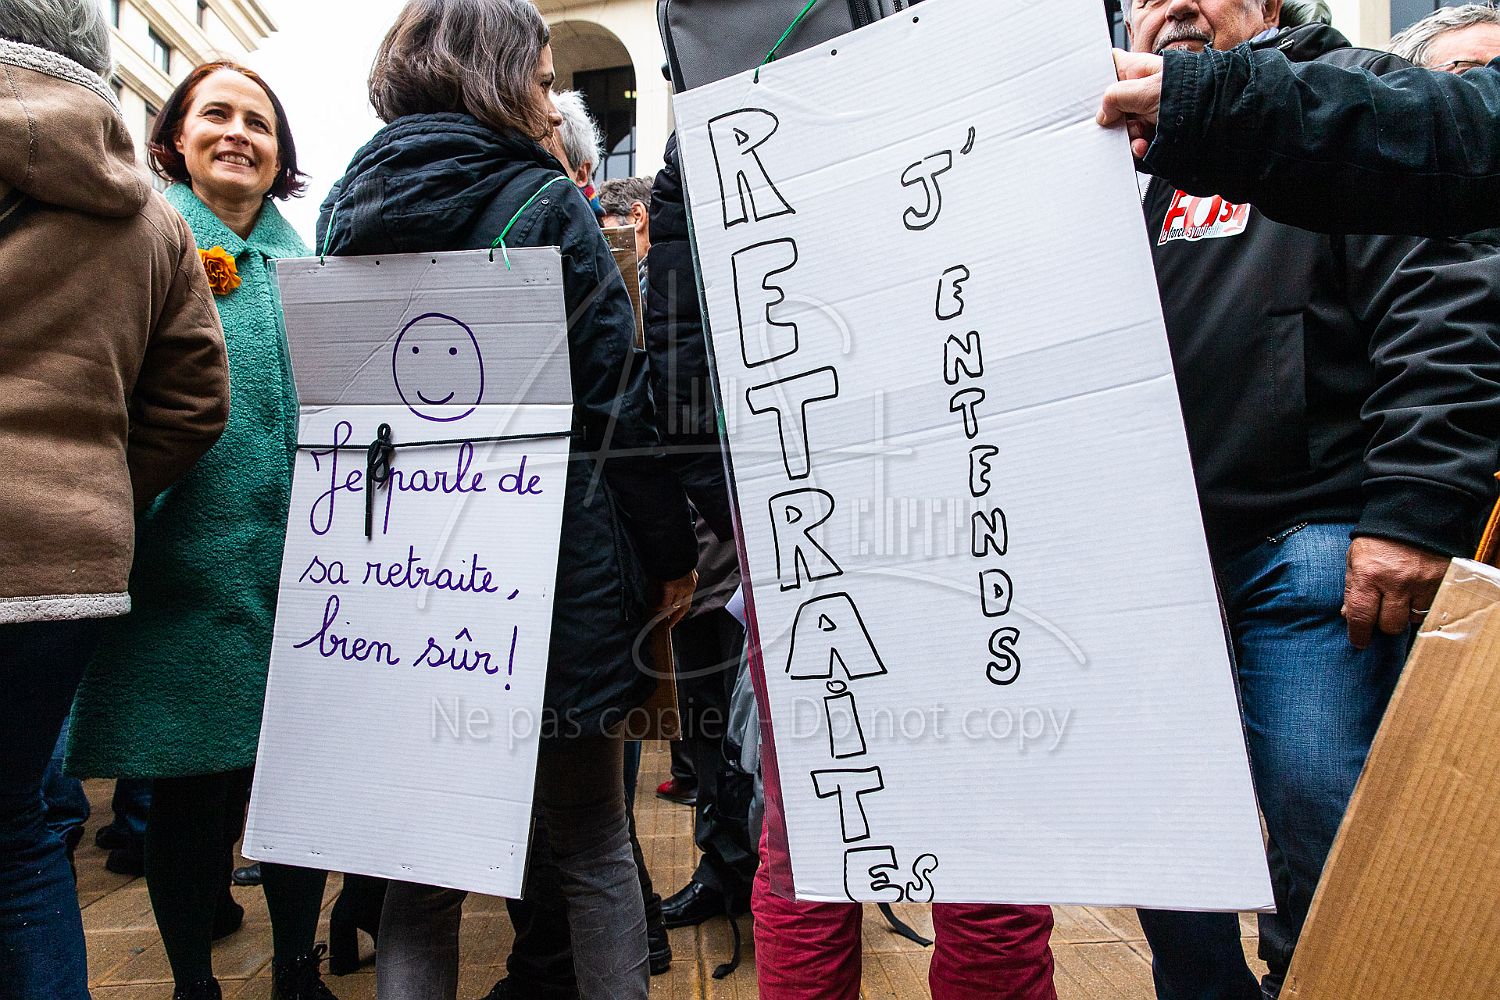 Je parle de
sa retraite,
bien sûr!
RETRAITES
J'ENTENDS
FO 34
la force syndicale
ALS+
chree
Ne pas copier - Do not copy